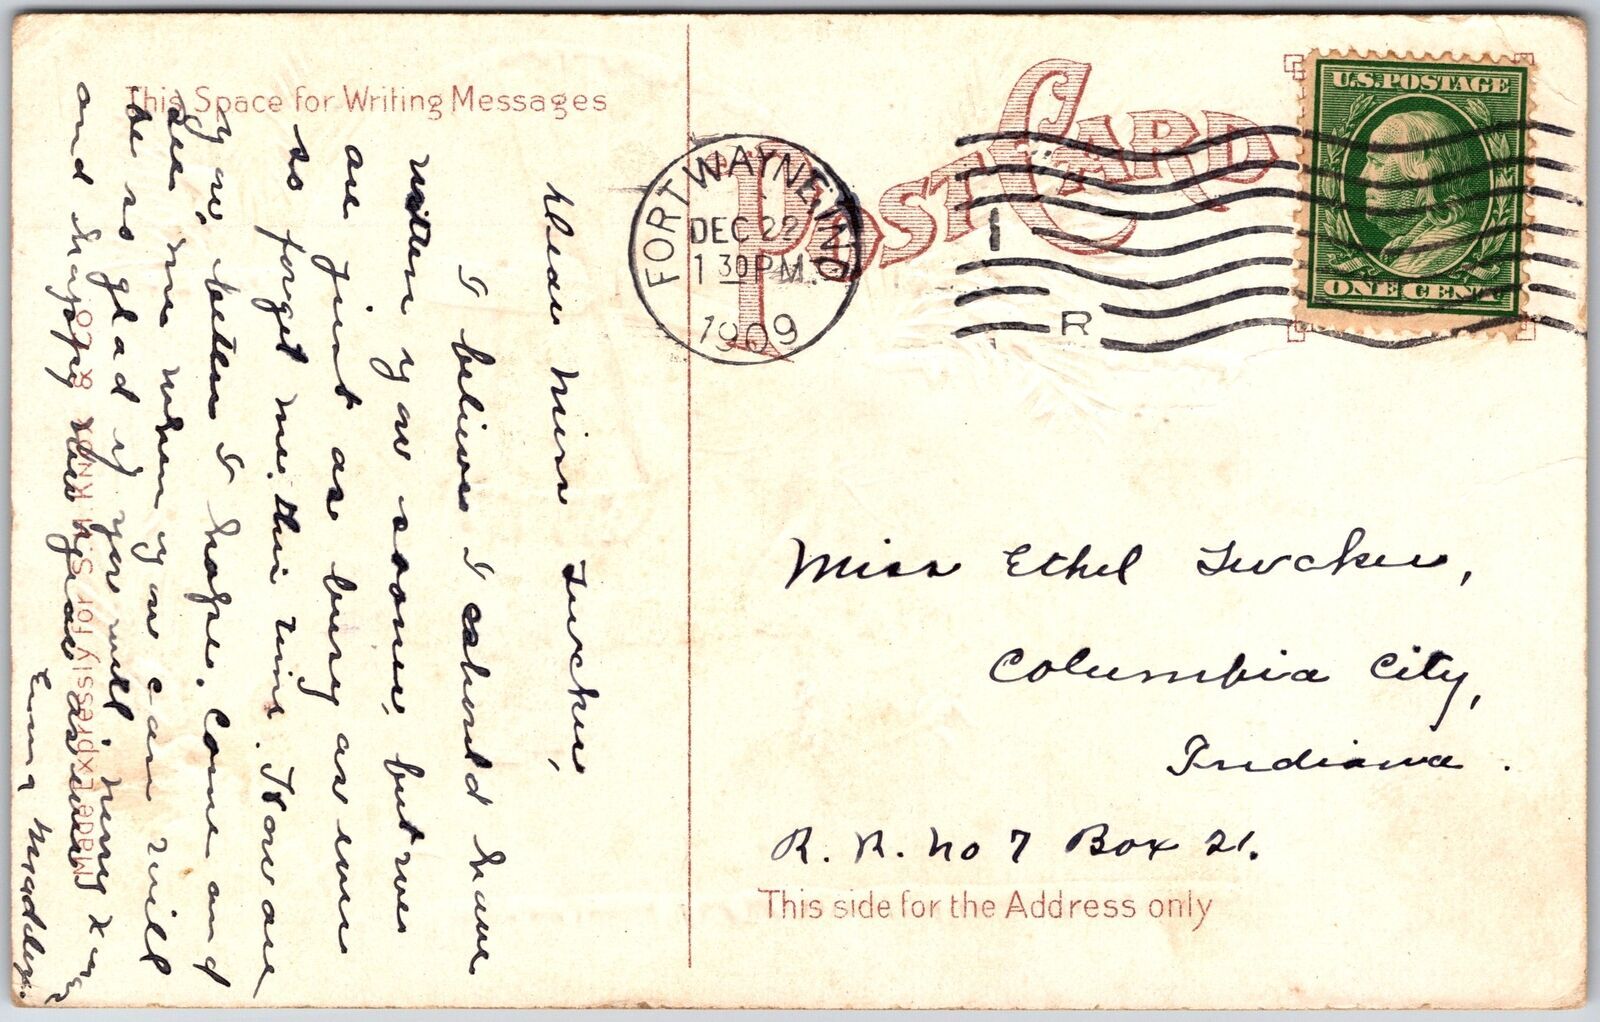 This Space for Writing Messages
Dear Miss Tucker,
I believe I should have
written you sooner, but we
are just as busy as ever
so forget me this time. How are
you, better I hope. Come and
see me when you can will
be so glad if you will. Merry Xmas
and happy New year as ever
Emma Maddox.
Made Expressly for S. H. KNOX & CO.
POST CARD
FORT WAYNE, IND.
DEC 22
1 30 PM
1909
1
R
U.S. POSTAGE
ONE CENT
Miss Ethel Tucker,
Columbia City,
Indiana.
R. R. No 7 Box 21.
This side for the Address only